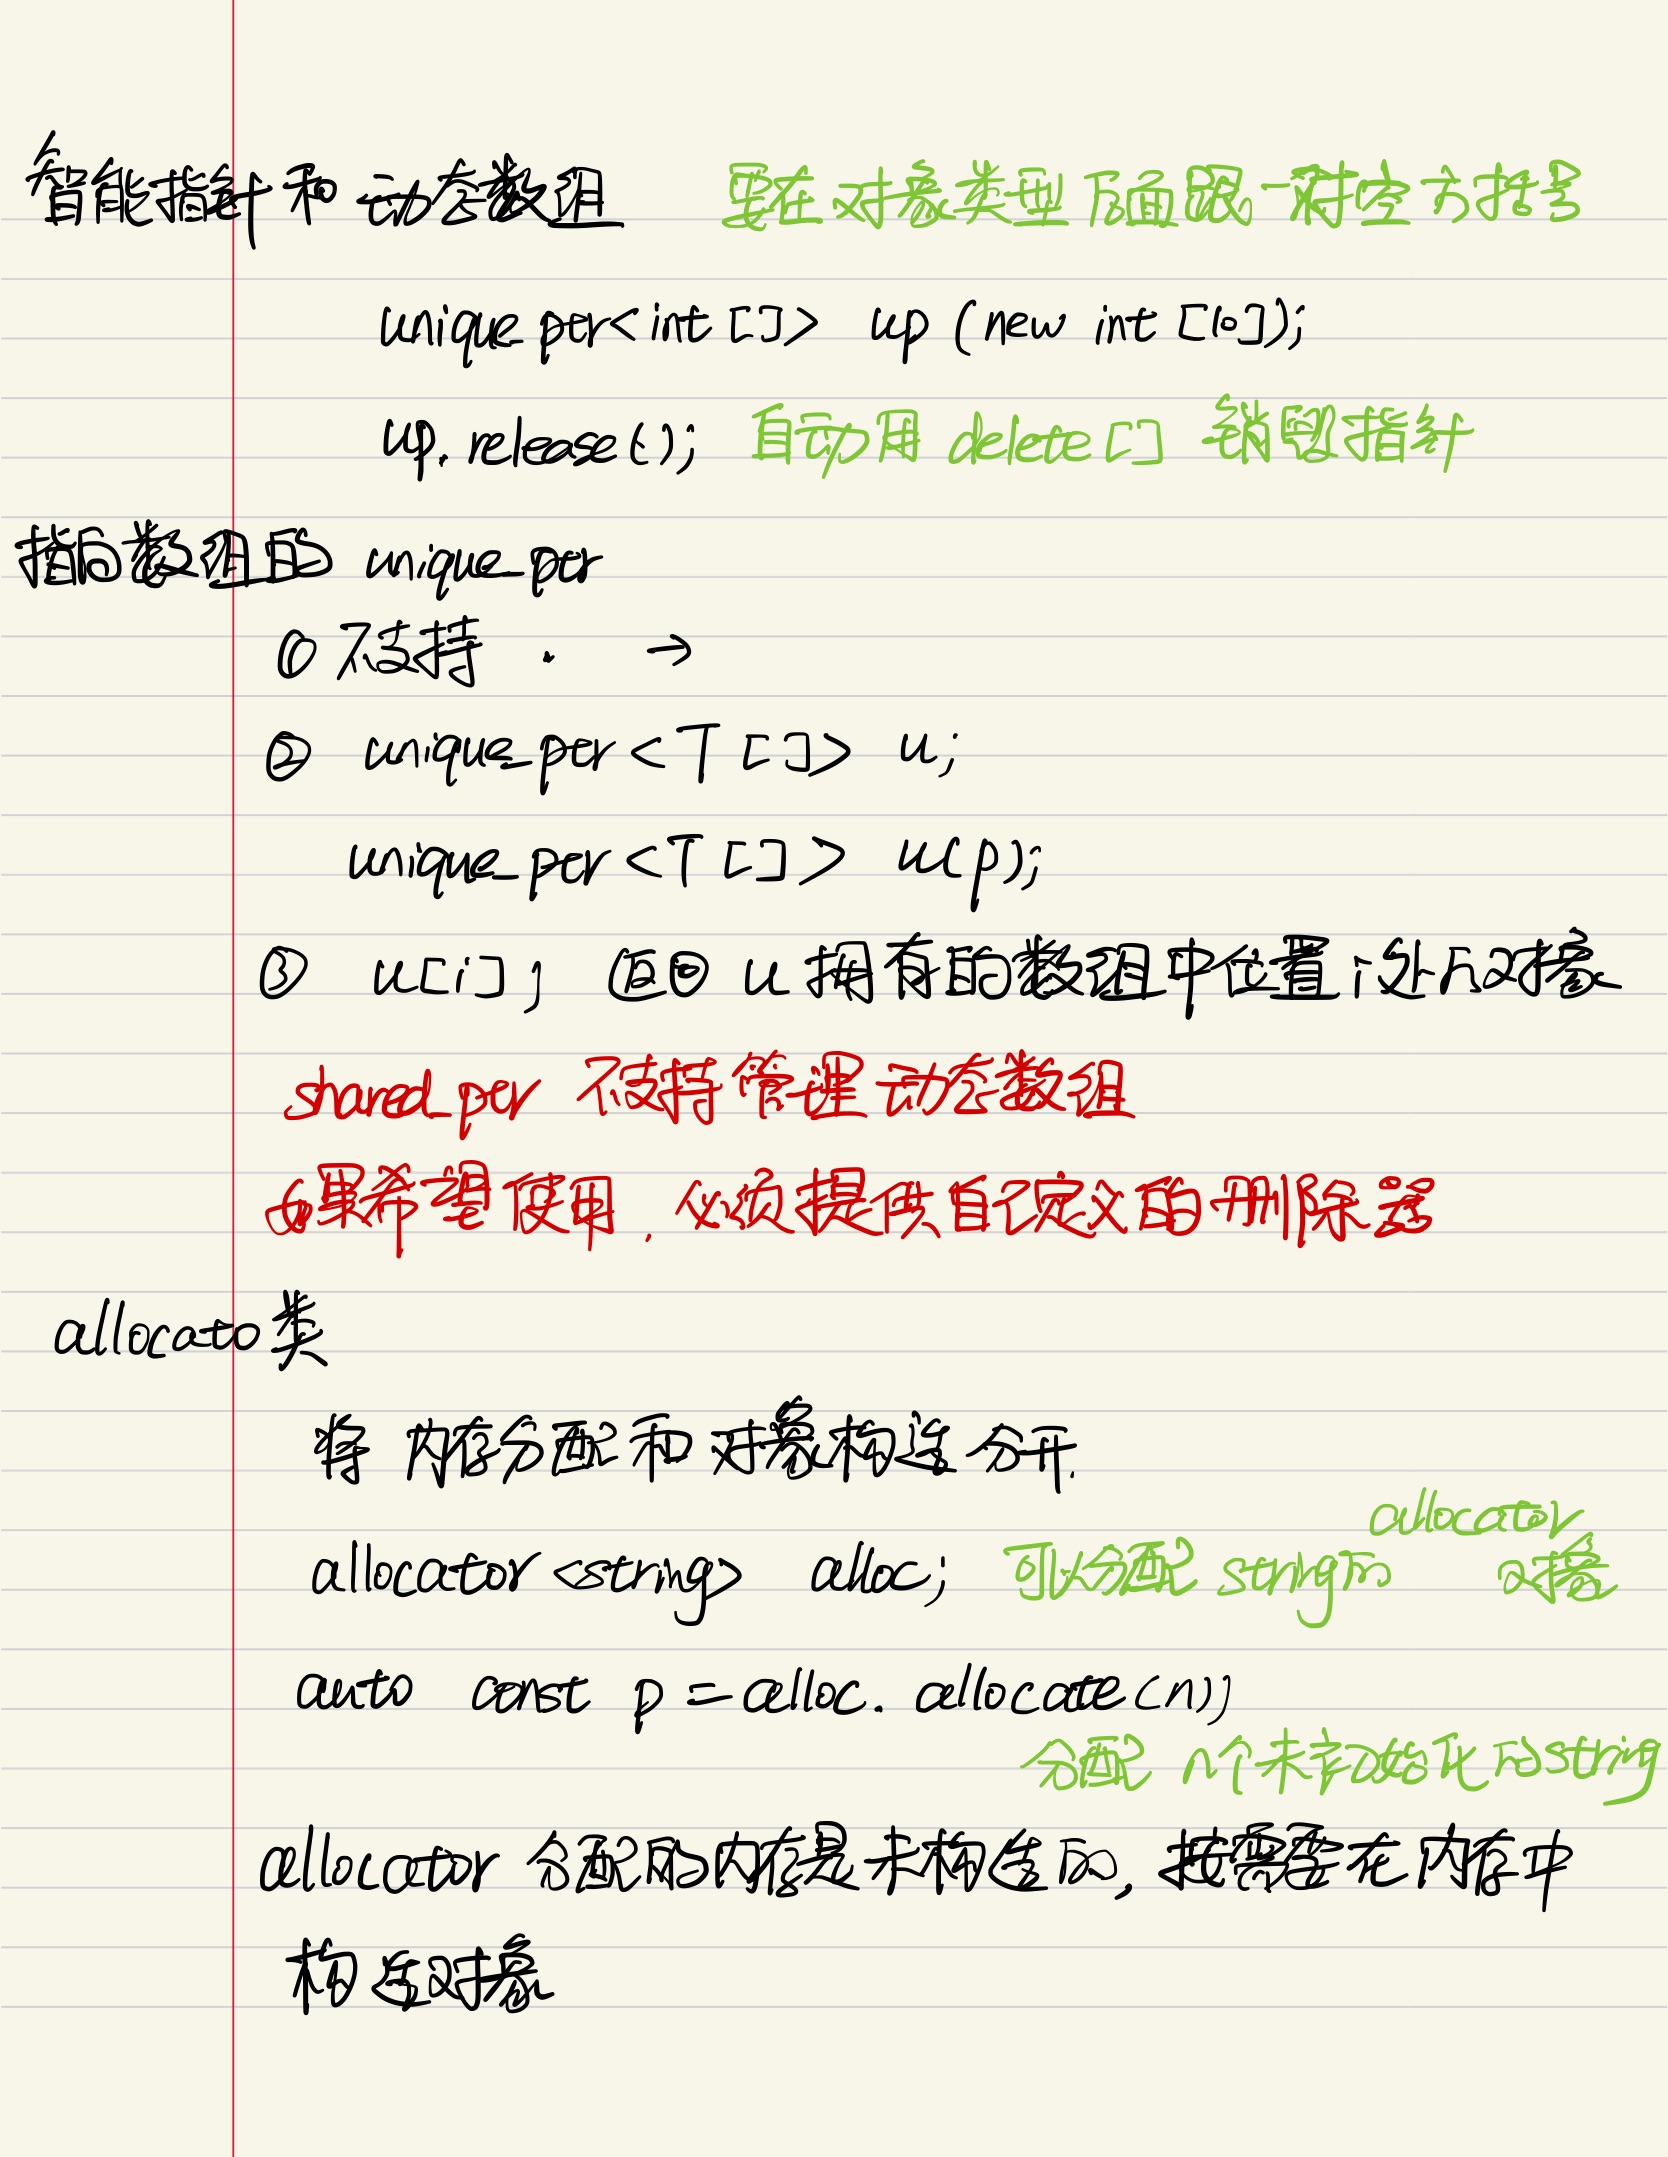 智能指针和动态数组 要在对象类型后面跟一对空方括号
unique_ptr<int []> up (new int [10]);
up.release(); 自动用 delete [] 销毁指针
指向数组的 unique_ptr
① 不支持 . →
② unique_ptr <T []> u;
unique_ptr <T []> u(p);
③ u[i]; 返回 u 拥有的数组中位置 i 处的对象
shared_ptr 不支持管理动态数组
如果希望使用, 必须提供自己定义的删除器
allocato类
将 内存分配和对象构造分开.
allocator
allocator <string> alloc; 可以分配 string的 对象
auto const p = alloc. allocate (n);
分配 n个未初始化的string
allocator 分配的内存是未构造的, 按需要在内存中
构造对象